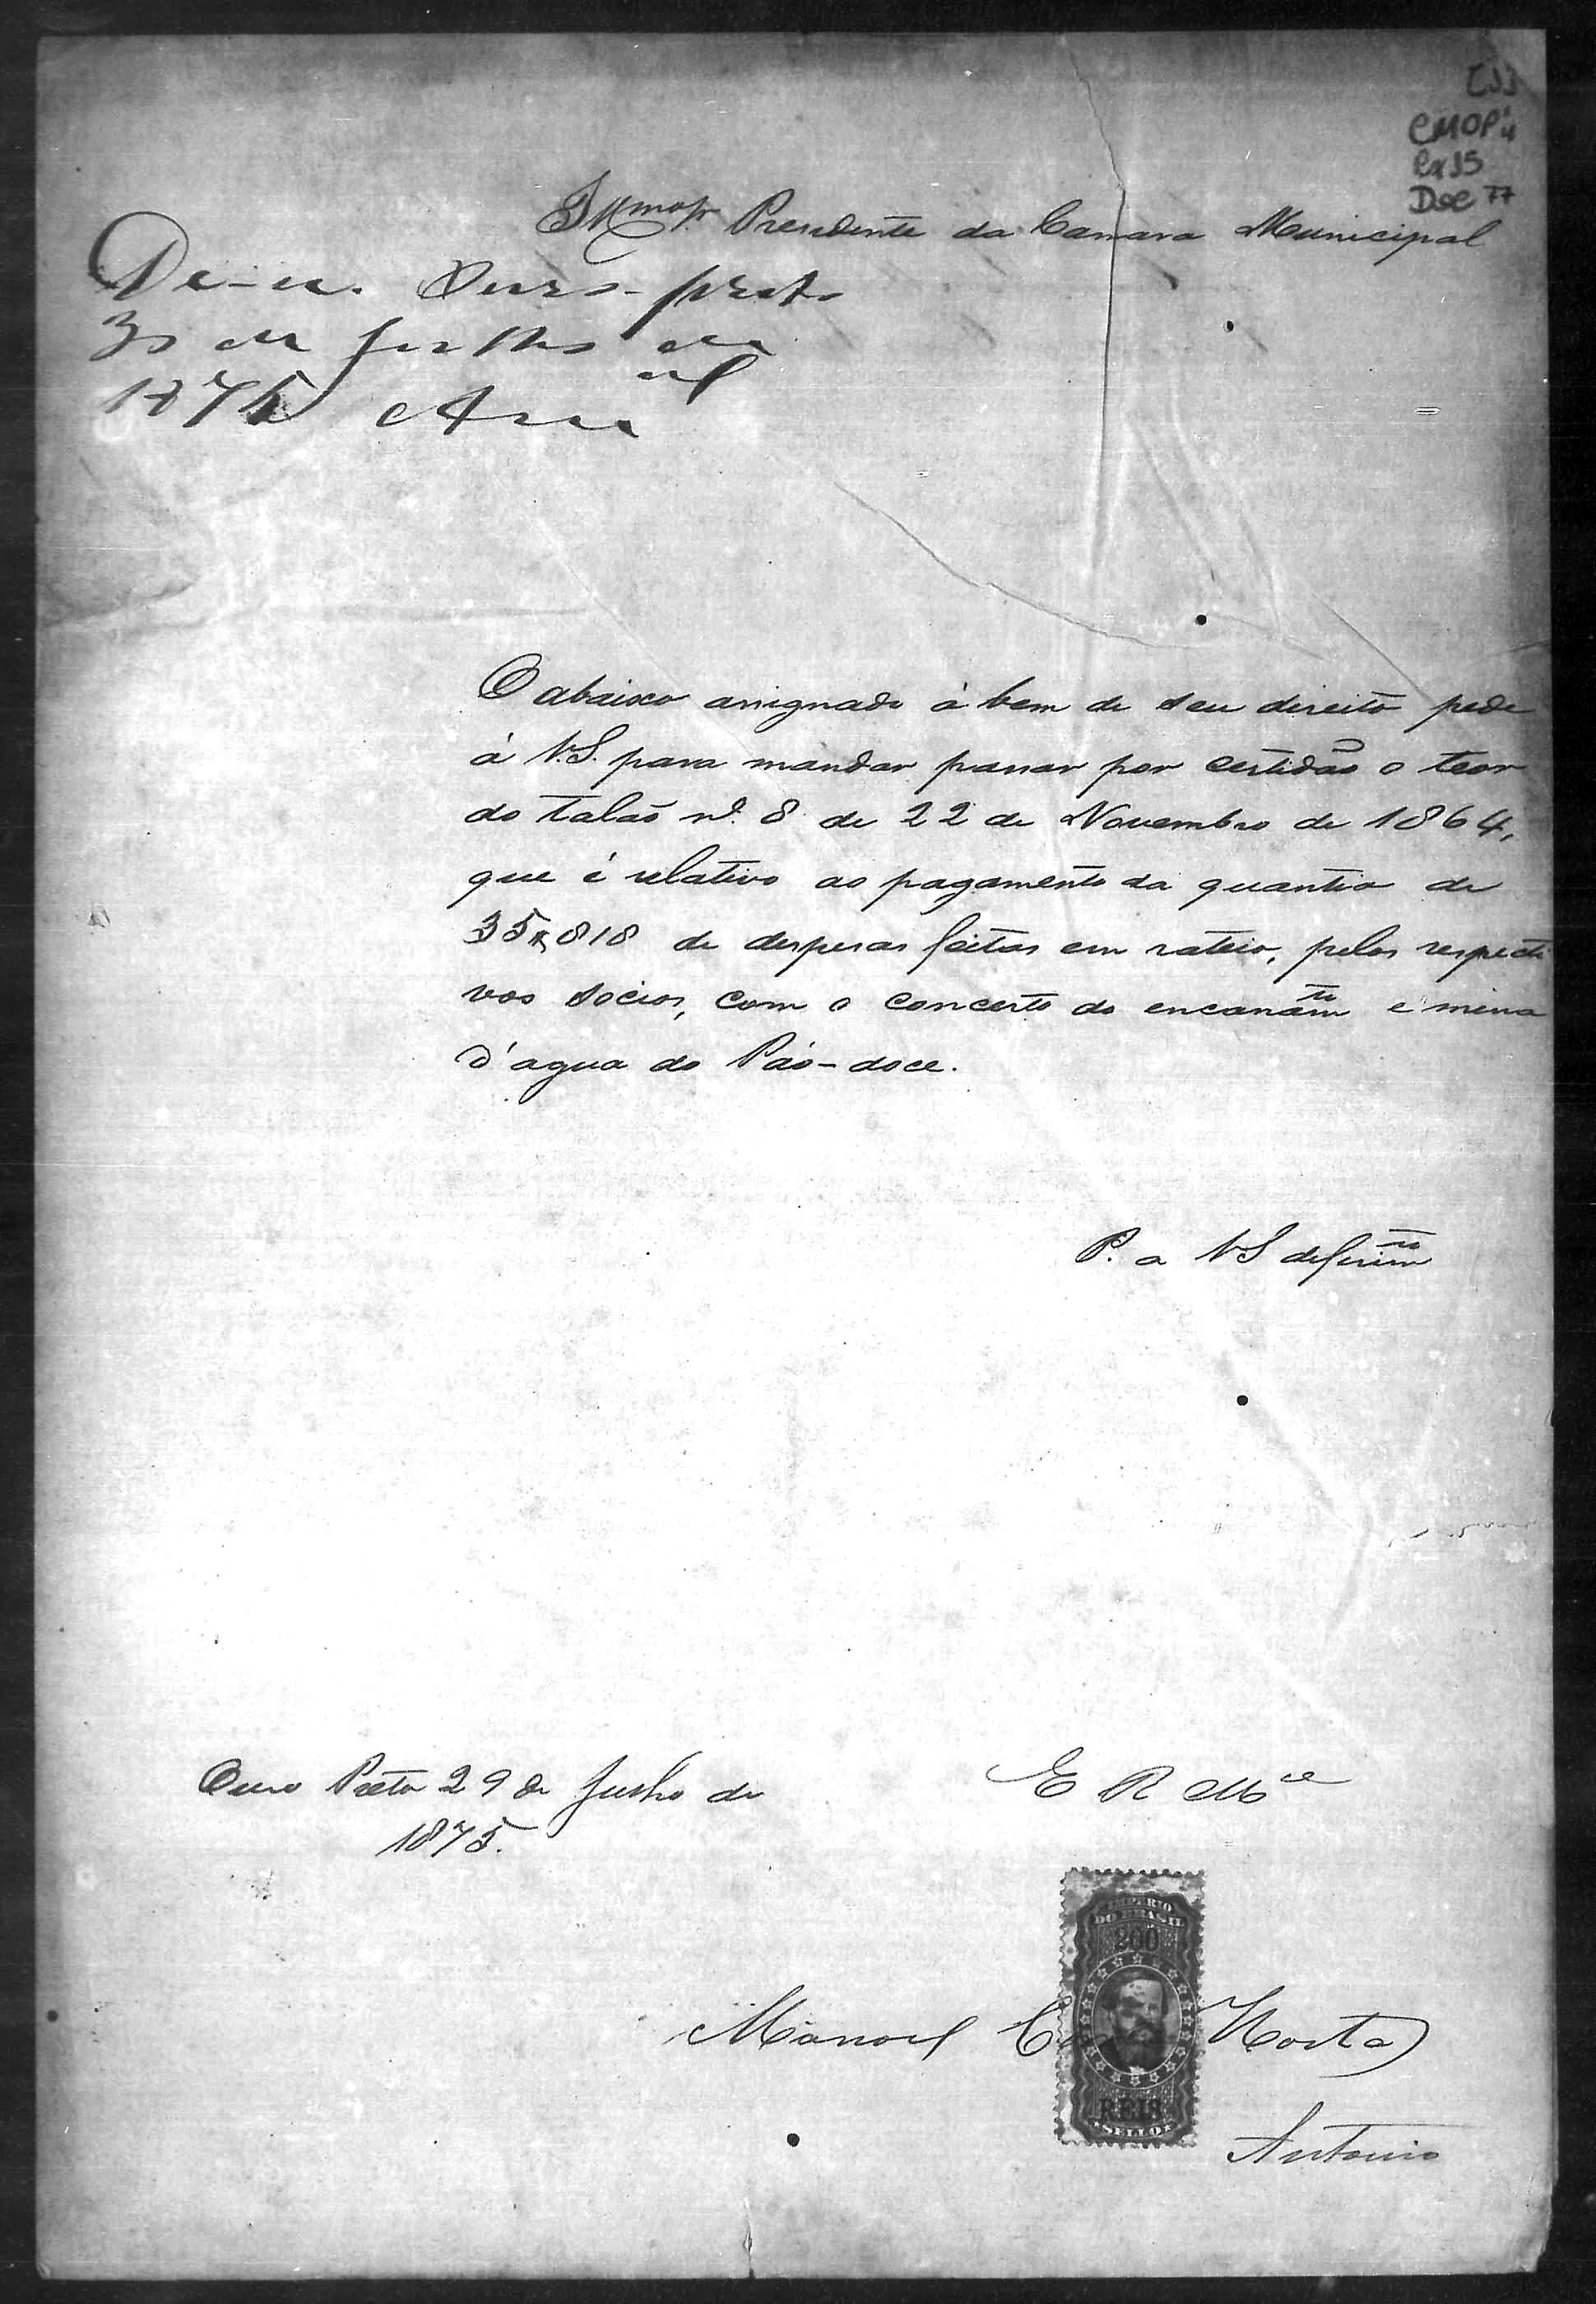 CMOP
Cx 15
Doc 77
Illmo Sr. Presidente da Camara Municipal
De-se. Ouro-preto
30 de Julho de
1875
O abaixo assignado á bem de seu direito pede
á V.S. para mandar passar por certidão o teor
do talão nº 8 de 22 de Novembro de 1864,
que é relativo ao pagamento da quantia de
35$818 de despesas feitas em rateio, pelos respecti
vos socios, com o concerto do encanamto e mina
d'agua do Páo-doce.
P. a VS deferimto
Ouro Preto 29 de Julho de
1875.
E R Mce
IMPERIO
DO BRASIL
200
Manoel Horta
REIS
SELLO
Antonio